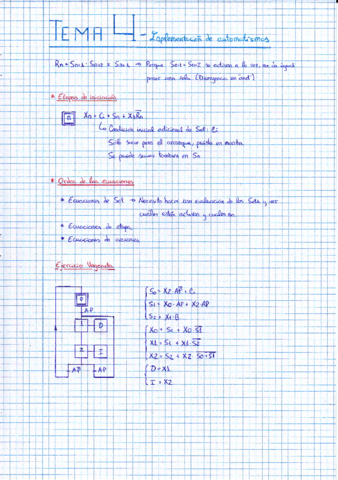 TEMA 4 - Implementación de automatismos
Rn = Sn+1 · Sn+2 = Sn+1 → Porque Sn+1 = Sn+2 se activan a la vez, me da igual
poner una sola (Divergencia en "and")
* Etapas de iniciación
n Xn = Ci + Sn + Xn R̅n̅
↳ Condición inicial adicional de Set: Ci
Sólo sirve para el arranque, puesta en marcha
Se puede sumar también en Sn
* Orden de las ecuaciones
* Ecuaciones de Set → Necesito hacer una evaluación de los Sets y ver
cuáles están activos y cuales no
* Ecuaciones de etapa
* Ecuaciones de acciones
Ejercicio Vagoneta
0
AP
1 D
2 I
A̅P̅ AP
S0 = X2·A̅P̅ + Ci
S1 = X0·AP + X2·AP
S2 = X1·B
X0 = S0 + X0·S̅1̅
X1 = S1 + X1·S̅2̅
X2 = S2 + X2·S̅0̅+̅S̅1̅
D = X1
I = X2